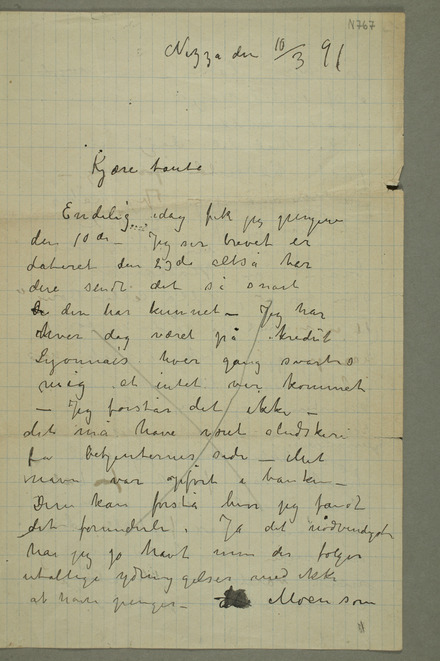 N767
Nizza den 10/3 91
Kjære tante
Endelig idag fik jeg pengene
den 10de – Jeg ser brevet er
dateret den 23de altså har
dere sendt det så snart
dere har kunnet – Jeg har
hver dag været på kredit
Lyonnais hver gang svartes
mig at intet var kommet
– Jeg forstår det ikke –
det må have været sludskeri
fra betjenternes side – mit
navn var opført i banken –
Dere kan forstå hvor jeg fandt
det forunderli. Ja det nødvendigste
har jeg jo havt men der følger
utallige ydmygelser med ikke
at have penger – Moen som